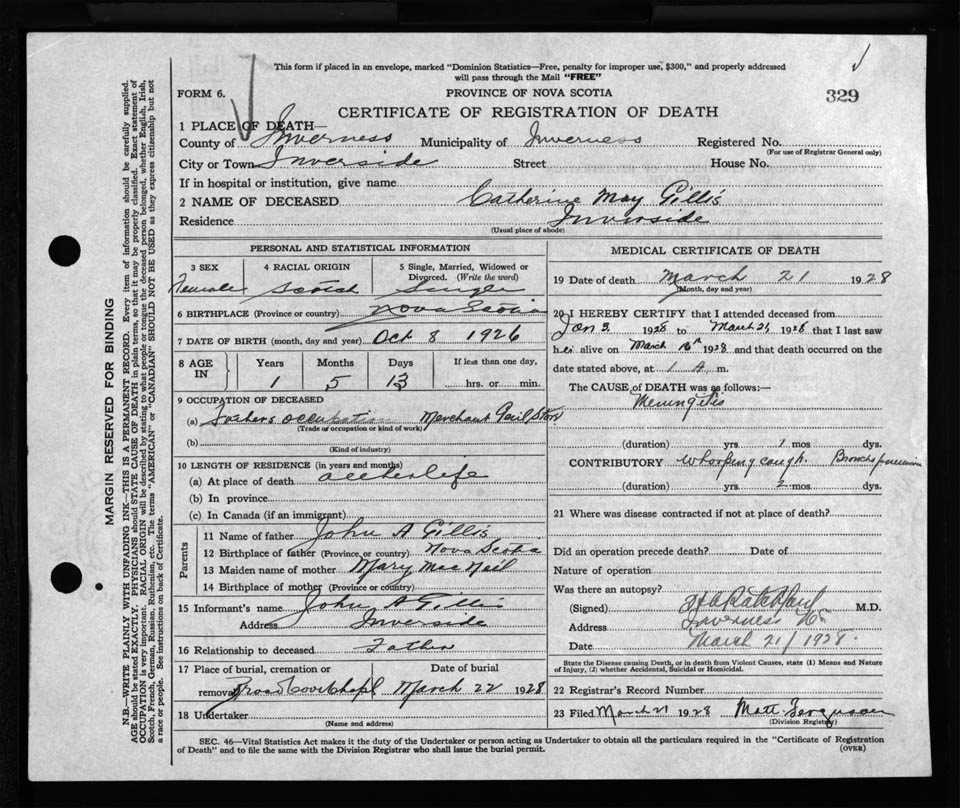 This form if placed in an envelope, marked "Dominion Statistics—Free, penalty for improper use, $300," and properly addressed
will pass through the Mail "FREE"
FORM 6.
PROVINCE OF NOVA SCOTIA
329
CERTIFICATE OF REGISTRATION OF DEATH
1 PLACE OF DEATH—
County of Inverness Municipality of Inverness Registered No.
(For use of Registrar General only)
City or Town Inverside Street House No.
If in hospital or institution, give name
2 NAME OF DECEASED Catherine May Gillis
Residence Inverside
(Usual place of abode)
PERSONAL AND STATISTICAL INFORMATION
3 SEX 4 RACIAL ORIGIN 5 Single, Married, Widowed or Divorced. (Write the word)
Female Scotch Single
6 BIRTHPLACE (Province or country) Nova Scotia
7 DATE OF BIRTH (month, day and year) Oct 8 1926
8 AGE IN Years Months Days If less than one day,
1 5 13 hrs. or min.
9 OCCUPATION OF DECEASED
(a) Fathers occupation Merchant
(Trade or occupation or kind of work)
(b)
(Kind of industry)
10 LENGTH OF RESIDENCE (in years and months)
(a) At place of death all her life
(b) In province
(c) In Canada (if an immigrant)
Parents
11 Name of father John A Gillis
12 Birthplace of father (Province or country) Nova Scotia
13 Maiden name of mother Mary MacNeil
14 Birthplace of mother (Province or country)
15 Informant's name John A Gillis
Address Inverside
16 Relationship to deceased Father
17 Place of burial, cremation or Date of burial
removal Broad Cove Chapl March 22 1928
18 Undertaker
(Name and address)
MEDICAL CERTIFICATE OF DEATH
19 Date of death March 21 1928
(Month, day and year)
20 I HEREBY CERTIFY that I attended deceased from
Jan 3 1928 to March 21 1928 that I last saw
her alive on March 16th 1928 and that death occurred on the
date stated above, at 1 A m.
The CAUSE of DEATH was as follows:—
Meningitis
(duration) yrs. 1 mos. dys.
CONTRIBUTORY Whooping cough. Broncho pneumonia
(duration) yrs. 2 mos. dys.
21 Where was disease contracted if not at place of death?
Did an operation precede death? Date of
Nature of operation
Was there an autopsy?
(Signed) M.D.
Address Inverness NS
Date March 21/1928.
State the Disease causing Death, or in death from Violent Causes, state (1) Means and Nature
of Injury, (2) whether Accidental, Suicidal or Homicidal.
22 Registrar's Record Number
23 Filed March 21 1928 Matt Ferguson
(Division Registrar)
SEC. 46—Vital Statistics Act makes it the duty of the Undertaker or person acting as Undertaker to obtain all the particulars required in the "Certificate of Registration
of Death" and to file the same with the Division Registrar who shall issue the burial permit. (OVER)
MARGIN RESERVED FOR BINDING
N.B.—WRITE PLAINLY WITH UNFADING INK—THIS IS A PERMANENT RECORD. Every item of information should be carefully supplied.
AGE should be stated EXACTLY. PHYSICIANS should STATE CAUSE OF DEATH in plain terms, so that it may be properly classified. Exact statement of
OCCUPATION is very important. RACIAL ORIGIN will be described by stating to what people or tongue the deceased person belonged, whether English, Irish,
Scotch, French, German, Russian, Ruthenian, etc. The terms "AMERICAN" or "CANADIAN" SHOULD NOT BE USED as they express citizenship but not
a race or people. See instructions on back of Certificate.